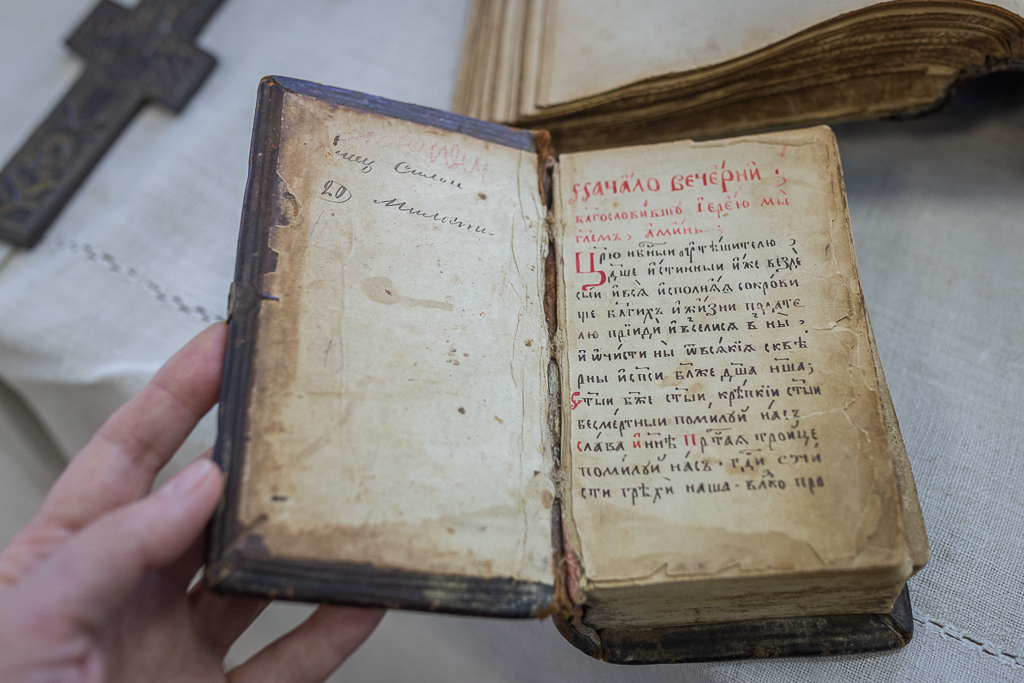 20
Начало вечерни ;
благословившу Їерею мы
глемъ , аминь ;
Црю нбныи оутѣшителю ,
дше истинныи иже везде
сыи ивсѧ исполнѧѧ сокрови
ще благихъ ижизни подате
лю прїиди ивселисѧ в ны ,
и ѡчисти ны ѿвсѧкїѧ сквѣ
рны испси блже дша нша ;
Стыи бже стыи , крѣпкїи стыи
бесмертныи помилуй насъ
слава и ннѣ Прстаѧ троице
помилуй насъ · гди ѡчи
сти грѣхи наша · влко про